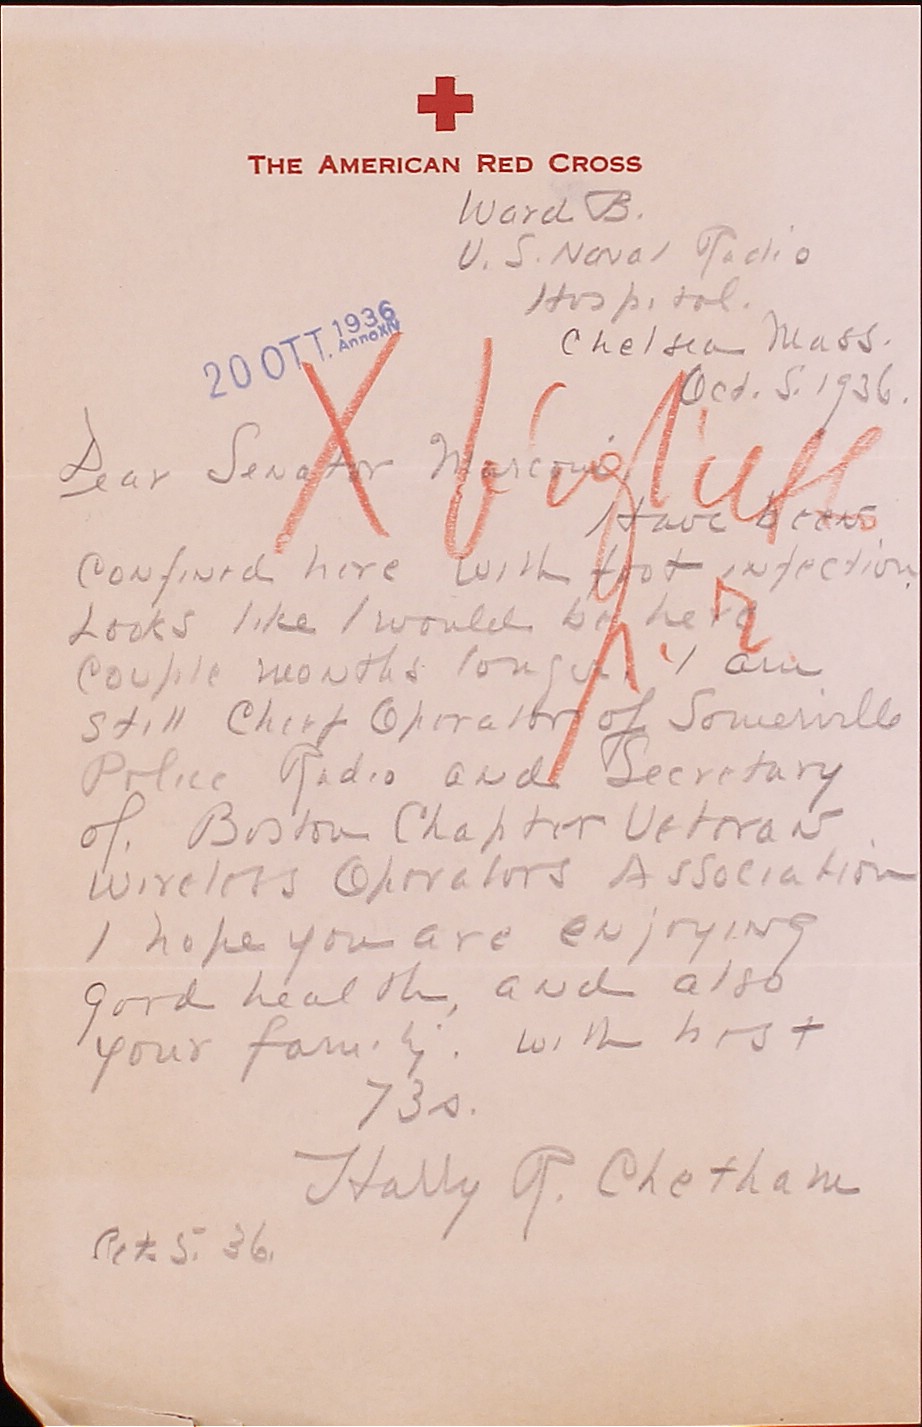 THE AMERICAN RED CROSS
Ward B.
U. S. Naval Radio
Hospital.
Chelsea Mass.
Oct. 5. 1936.
20 OTT. 1936
Anno XIV
Dear Senator Marconi
Have been
confined here with foot infection.
Looks like I would be here
couple months longer. I am
still Chief Operator of Somerville
Police Radio and Secretary
of. Boston Chapter Veteran
Wireless Operators Association
I hope you are enjoying
good health, and also
your family. with best
73s.
Harry R. Chetham
Oct. 5. 36.